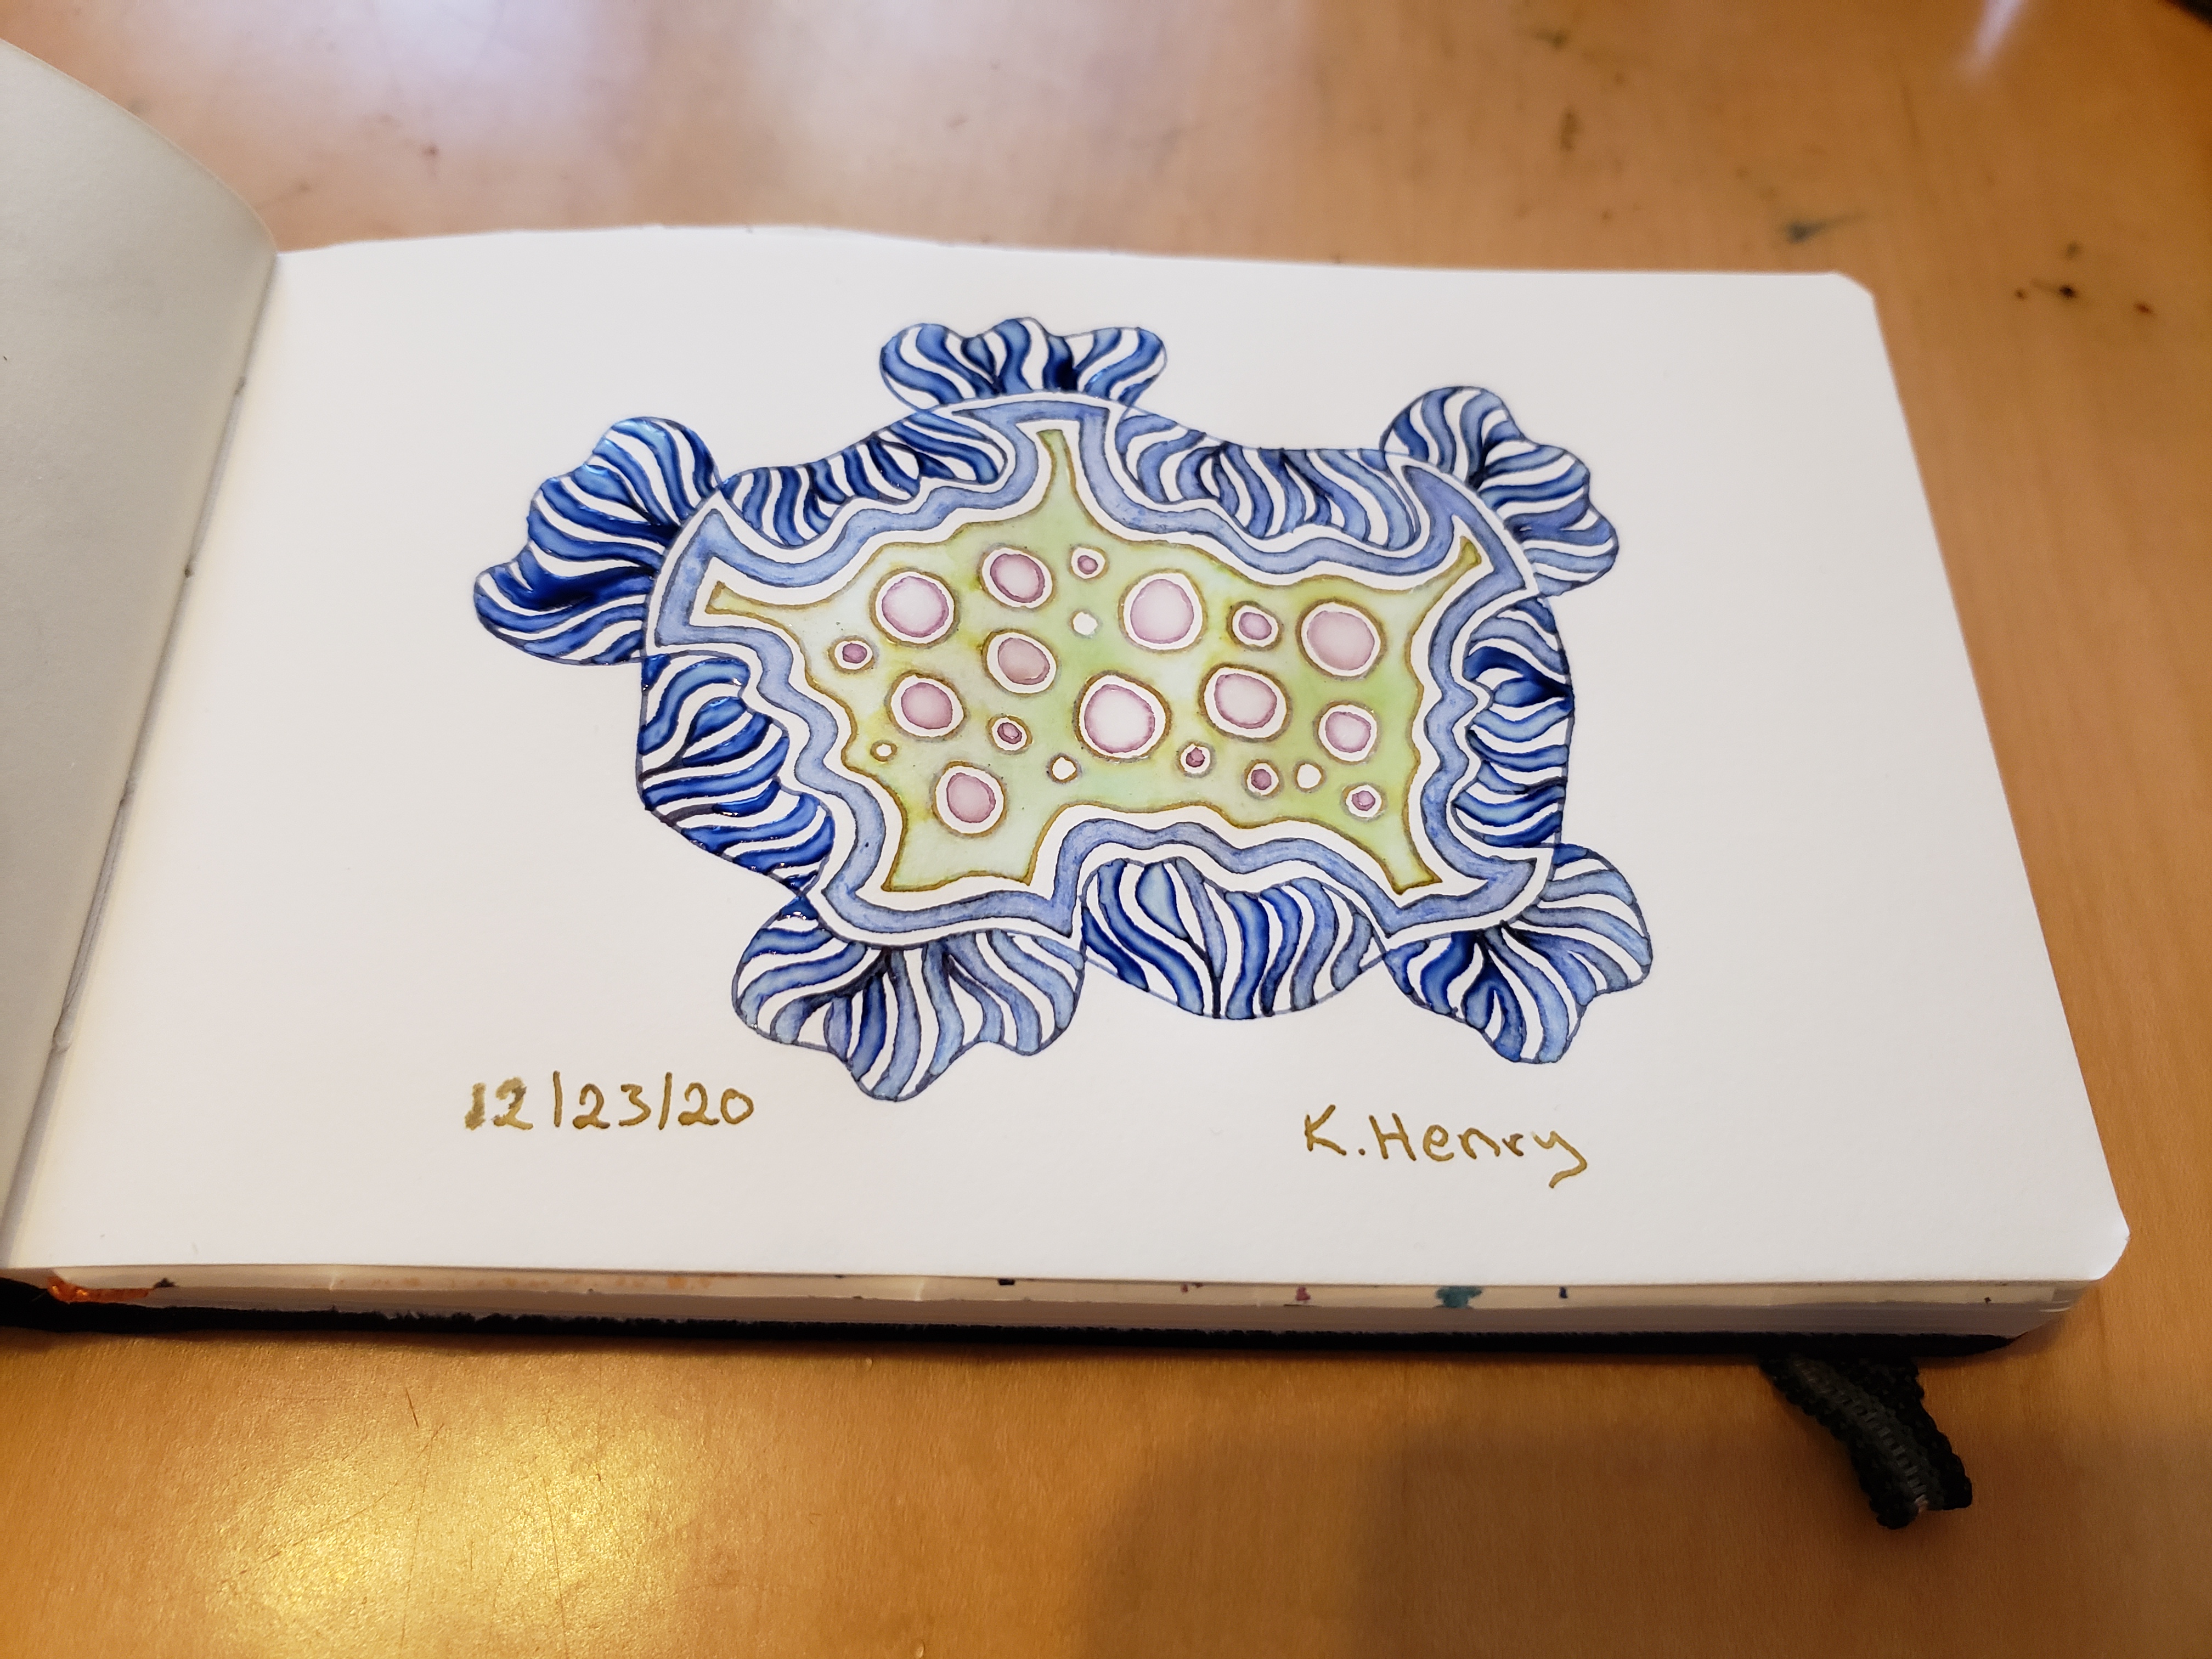 12/23/20
K. Henry